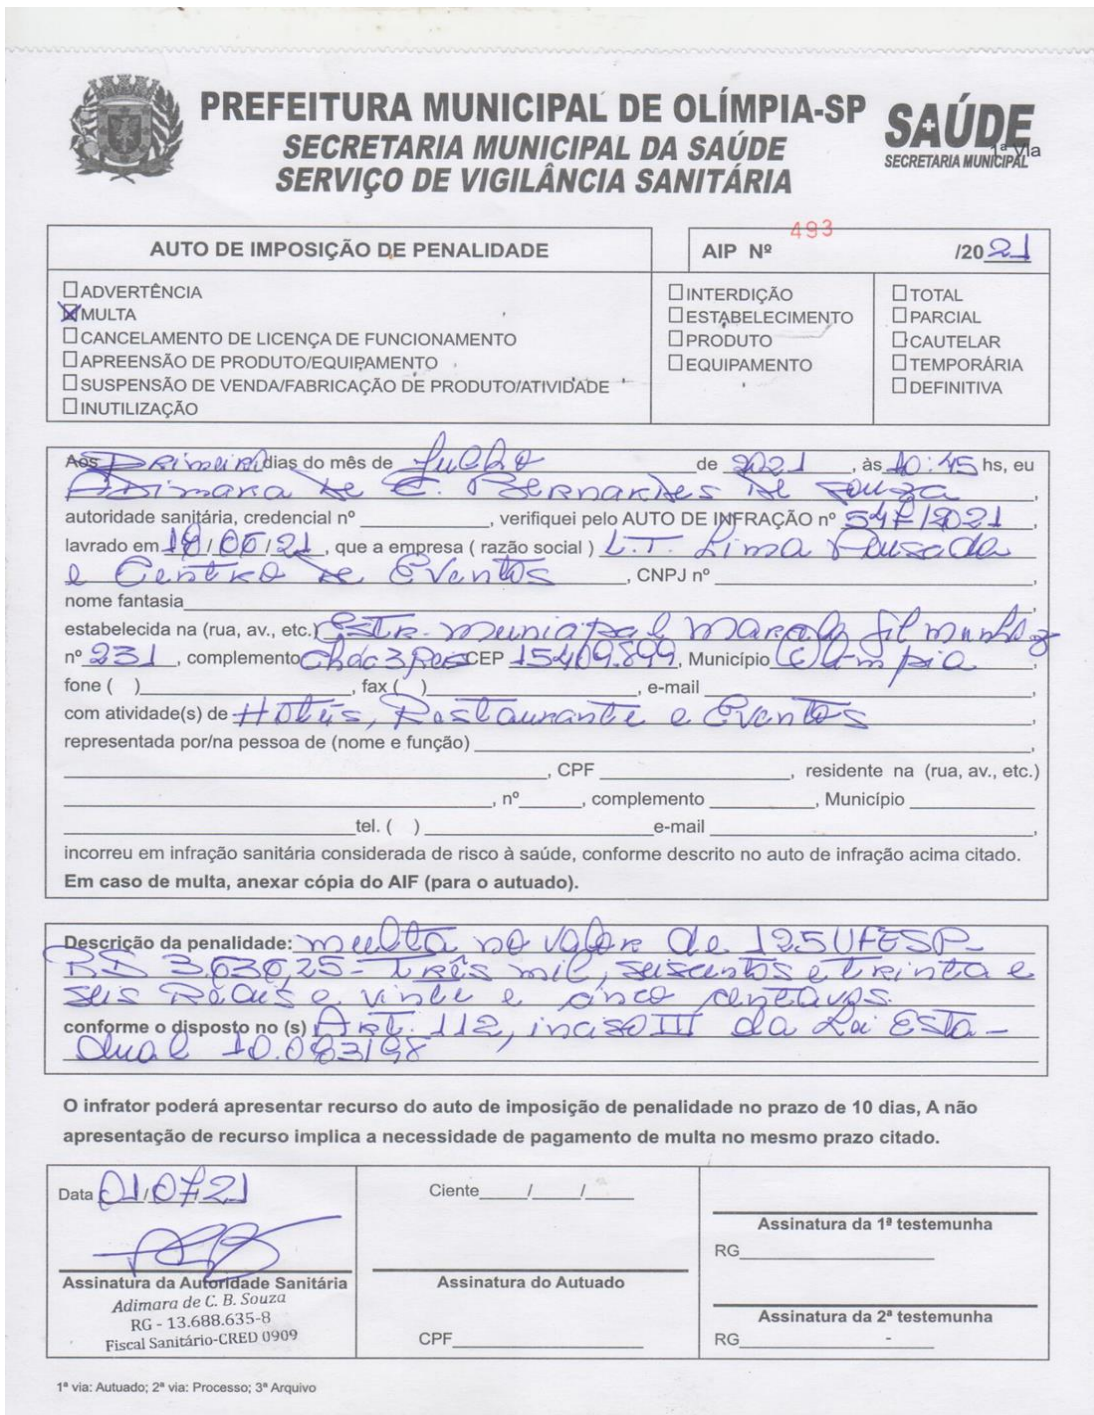 PREFEITURA MUNICIPAL DE OLÍMPIA-SP
SECRETARIA MUNICIPAL DA SAÚDE
SERVIÇO DE VIGILÂNCIA SANITÁRIA
SAÚDE
SECRETARIA MUNICIPAL
1ª Via
AUTO DE IMPOSIÇÃO DE PENALIDADE
AIP Nº 493 /2021
☐ ADVERTÊNCIA
☒ MULTA
☐ CANCELAMENTO DE LICENÇA DE FUNCIONAMENTO
☐ APREENSÃO DE PRODUTO/EQUIPAMENTO
☐ SUSPENSÃO DE VENDA/FABRICAÇÃO DE PRODUTO/ATIVIDADE
☐ INUTILIZAÇÃO
☐ INTERDIÇÃO
☐ ESTABELECIMENTO
☐ PRODUTO
☐ EQUIPAMENTO
☐ TOTAL
☐ PARCIAL
☐ CAUTELAR
☐ TEMPORÁRIA
☐ DEFINITIVA
Aos Primeiro dias do mês de Julho de 2021, às 10:45 hs, eu
Adimara de C. Bernardes de Souza,
autoridade sanitária, credencial nº , verifiquei pelo AUTO DE INFRAÇÃO nº 547/2021
lavrado em /21, que a empresa ( razão social ) L.T. Lima Pousada
e Centro de Eventos, CNPJ nº ,
nome fantasia ,
estabelecida na (rua, av., etc.) Estr. municipal Gil
nº 231, complemento CEP 15409.899, Município Olímpia
fone ( ) , fax ( ) , e-mail ,
com atividade(s) de Hotéis, Restaurante e Eventos,
representada por/na pessoa de (nome e função) ,
, CPF , residente na (rua, av., etc.)
, nº , complemento , Município
tel. ( ) e-mail ,
incorreu em infração sanitária considerada de risco à saúde, conforme descrito no auto de infração acima citado.
Em caso de multa, anexar cópia do AIF (para o autuado).
Descrição da penalidade: multa no valor de 125 UFESP-
R$ 3.636,25 - três mil, seiscentos e trinta e
seis Reais e vinte e cinco centavos.
conforme o disposto no (s) Art. 112, inciso III da Lei Esta-
dual 10.083/98
O infrator poderá apresentar recurso do auto de imposição de penalidade no prazo de 10 dias, A não
apresentação de recurso implica a necessidade de pagamento de multa no mesmo prazo citado.
Data 01/07/21
Assinatura da Autoridade Sanitária
Adimara de C. B. Souza
RG - 13.688.635-8
Fiscal Sanitário-CRED 0909
Ciente / /
Assinatura do Autuado
CPF
Assinatura da 1ª testemunha
RG
Assinatura da 2ª testemunha
RG
1ª via: Autuado; 2ª via: Processo; 3ª Arquivo